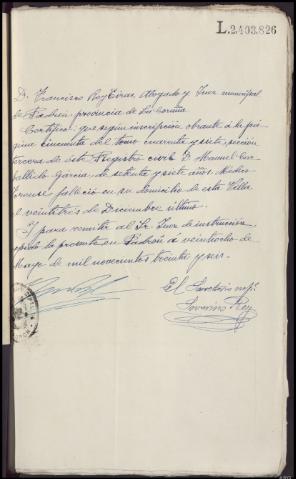 L.2.403.826
D. Francisco Rey Eiras, Abogado y Juez municipal
de Padrón, provincia de La Coruña
Certifico: que según inscripción obrante a la pá-
gina cincuenta del tomo cuarenta y seis, sección
tercera de este Registro civil D. Manuel Car-
balleda García, de setenta y seis años, Médico
forense, falleció en su domicilio de esta Villa
el veintitrés de Diciembre último.
Y para remitir al Sr. Juez de instrucción,
expido la presente en Padrón a veintiocho de
Mayo de mil novecientos treinta y seis.
El Secretario
Rey